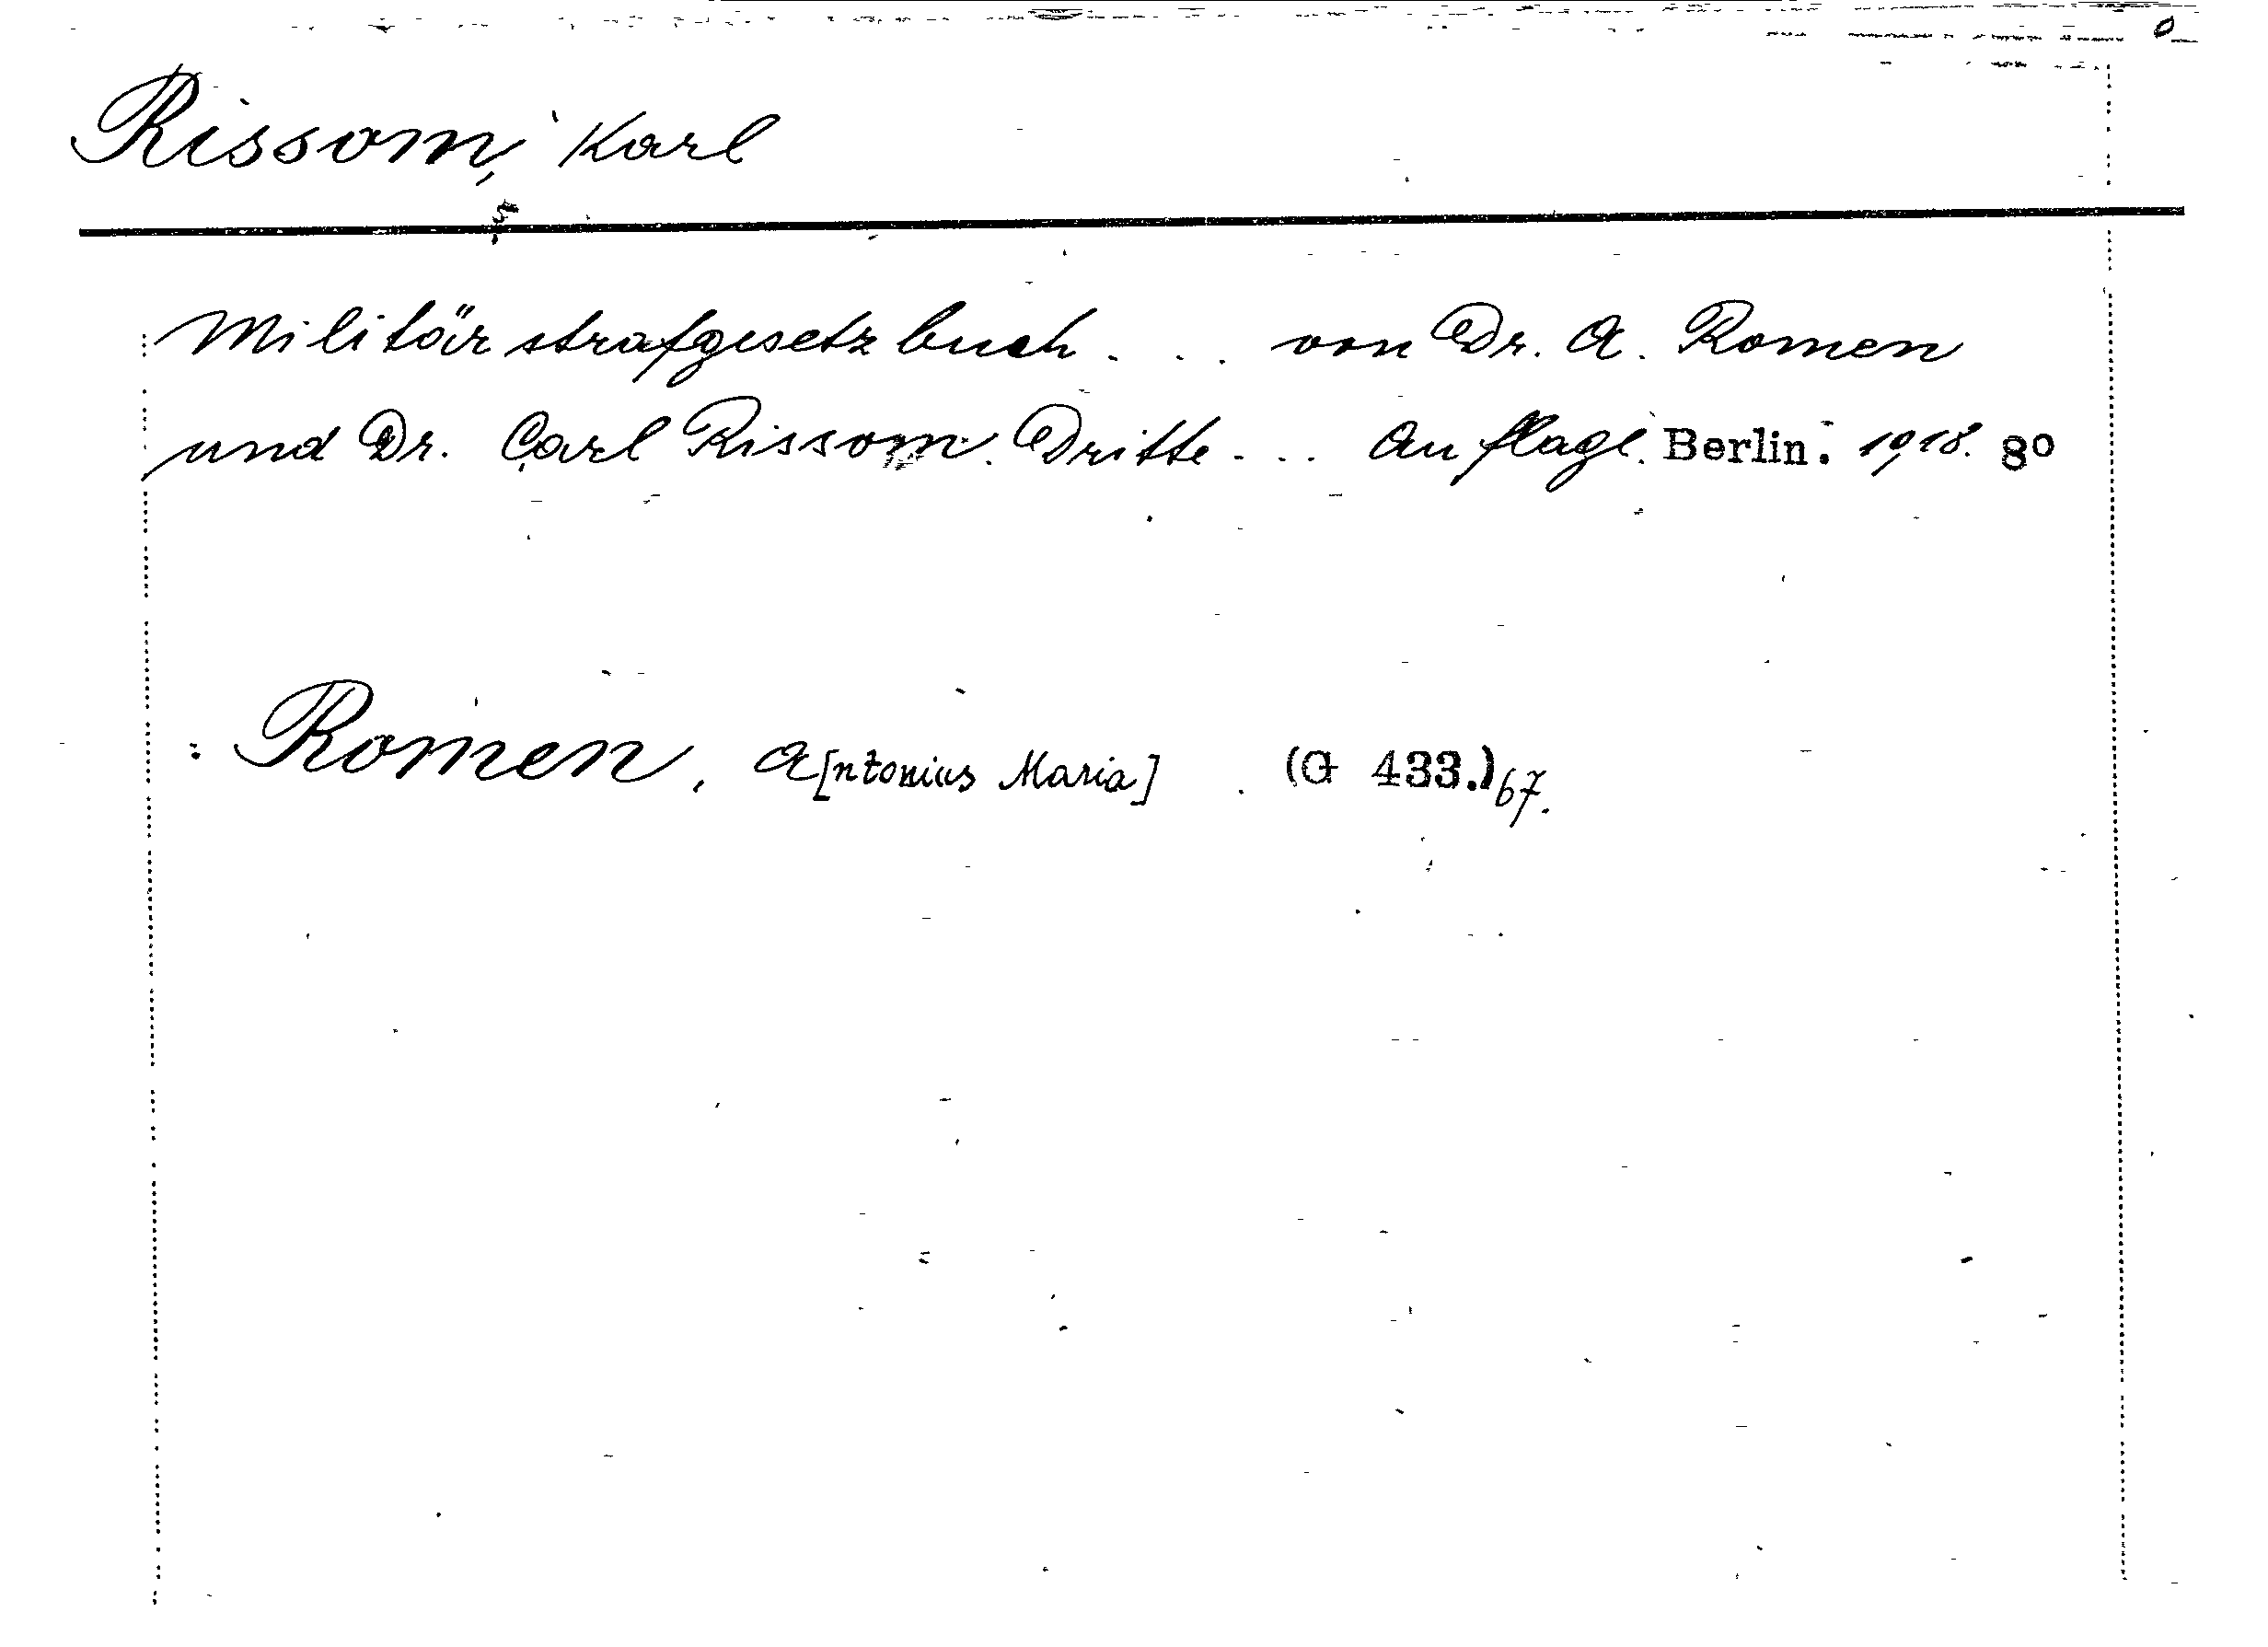 Rissom, Karl
Militärstrafgesetzbuch. . . von Dr. A. Romen
und Dr. Carl Rissom. Dritte . . . Auflage. Berlin. 1918. 8º
: Romen, A[ntonius Maria] . (G 433.)67.